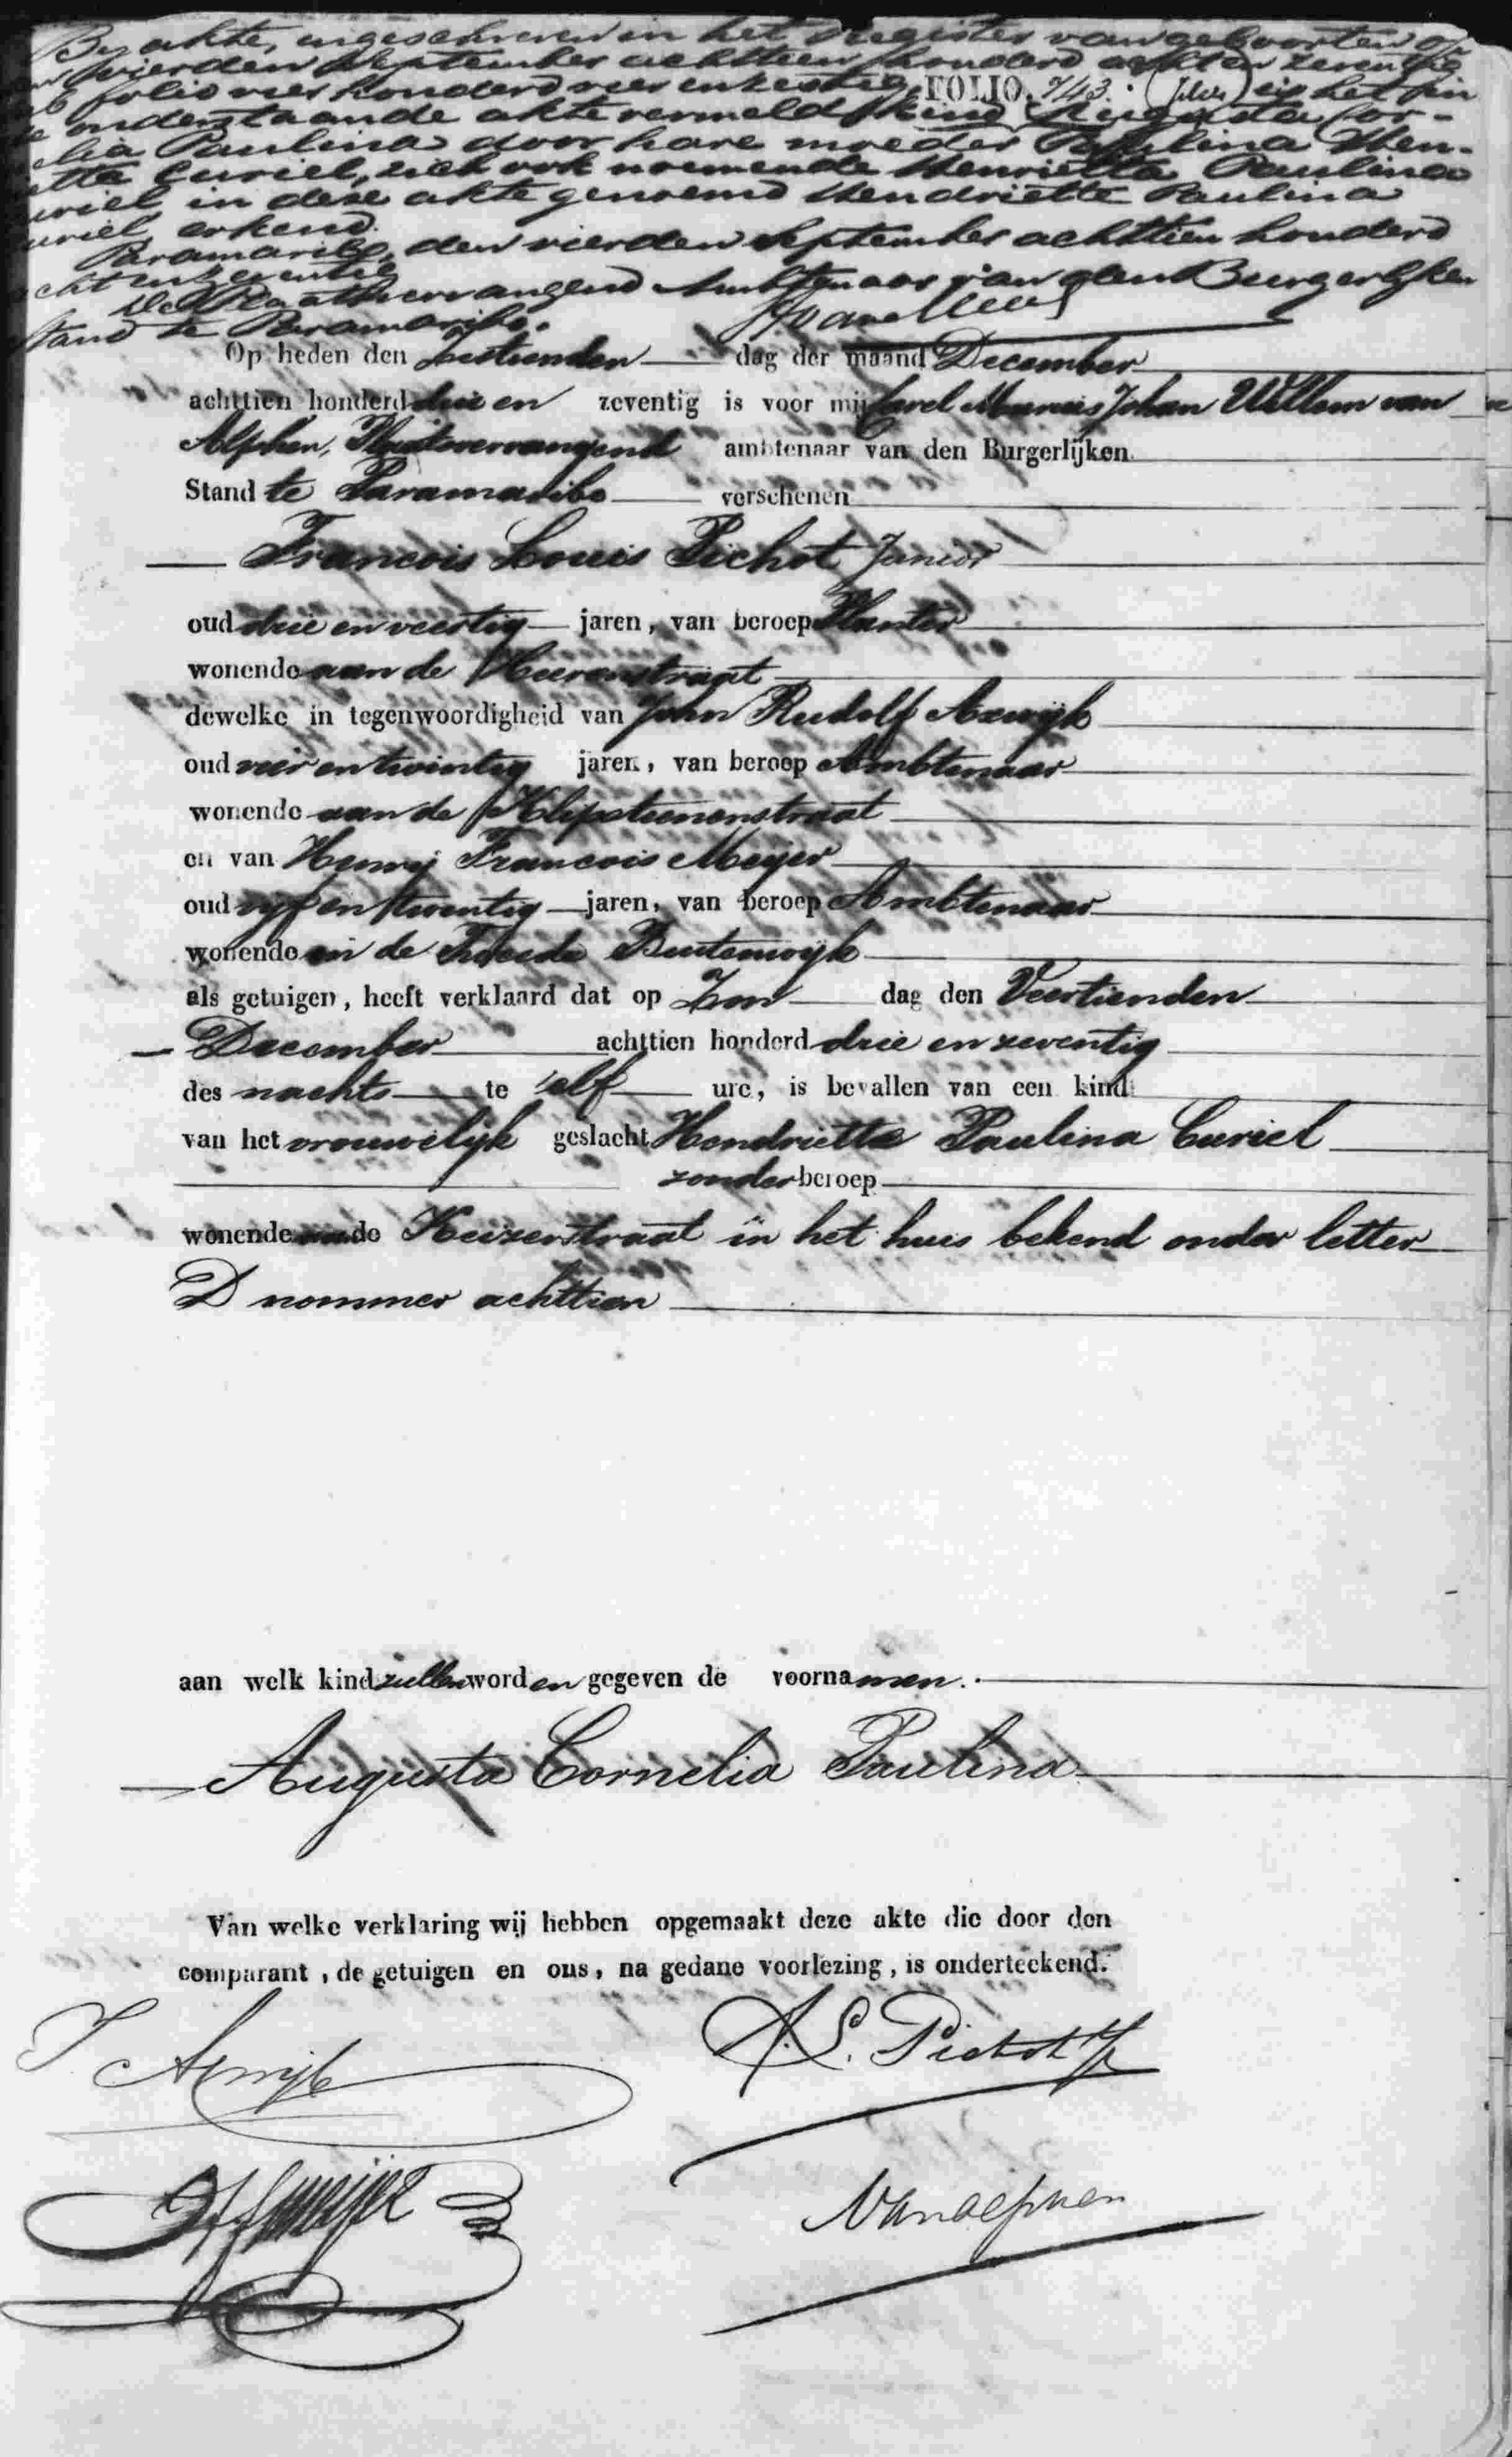 By akte, ingeschreven in het Register van geboorten op
den vierden September achttien honderd acht en zeventig
folio vier honderd vier en zestig, is het in
FOLIO 743.
onderstaande akte vermeld kind Augusta Cor-
nelia Paulina door hare moeder Paulina Hen-
riette Curiel, zich ook noemende Henriette Paulina
Curiel in deze akte genoemd Hendriette Paulina
Curiel erkend.
Paramaribo, den vierden September achttien honderd
acht en zeventig
De Plaatsvervangend Ambtenaar van den Burgerlijken
Stand te Paramaribo.
Op heden den Zestienden dag der maand December
achttien honderd drie en zeventig is voor mij Carel Marius Johan Willem van
Alphen, Plaatsvervangend ambtenaar van den Burgerlijken
Stand te Paramaribo verschenen
Francois Louis Pichot Junior
oud drie en veertig jaren, van beroep Planter
wonende aan de Heerenstraat
dewelke in tegenwoordigheid van John Rudolf Azwijk
oud vier en twintig jaren, van beroep Ambtenaar
wonende aan de Klipsteenenstraat
en van Henry Francois Meyer
oud vyf en twentig jaren, van beroep Ambtenaar
wonende in de Tweede Buitenwyk
als getuigen, heeft verklaard dat op Zon dag den Veertienden
December achttien honderd drie en zeventig
des nachts te elf ure, is bevallen van een kind
van het vrouwelijk geslacht Hendriette Paulina Curiel
zonder beroep
wonende de Keizerstraat in het huis bekend onder letter
D nommer achttien
aan welk kind zullen worden gegeven de voornamen.
Augusta Cornelia Paulina
Van welke verklaring wij hebben opgemaakt deze akte die door den
comparant, de getuigen en ons, na gedane voorlezing, is onderteekend.
J Azwijk
F. L. Pichot Jr
HF Meijer
Van Alphen